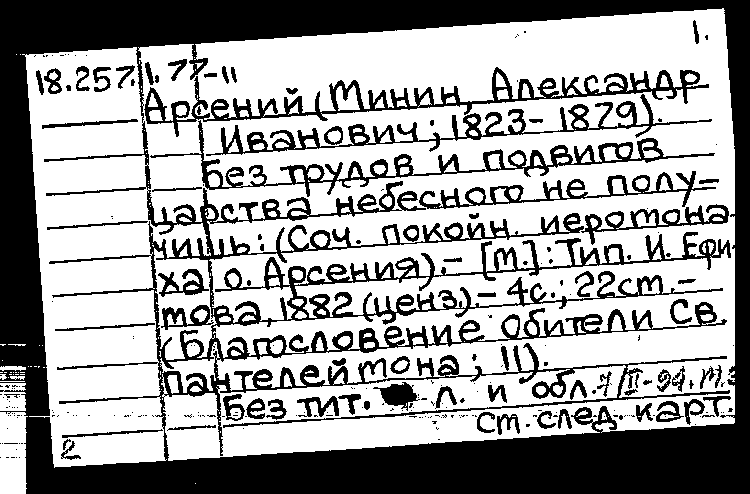 1.
18.257.1.77-11
Арсений (Минин, Александр
Иванович; 1823-1879).
Без трудов и подвигов
царства небесного не полу=
чишь: (Соч. покойн. иеромона-
ха о. Арсения).- [М.]: Тип. И. Ефи-
мова, 1882 (ценз.)- 4с.; 22см.-
(Благословение обители Св.
Пантелеймона; 11).
Без тит. л. и обл.
См. след. карт.
2